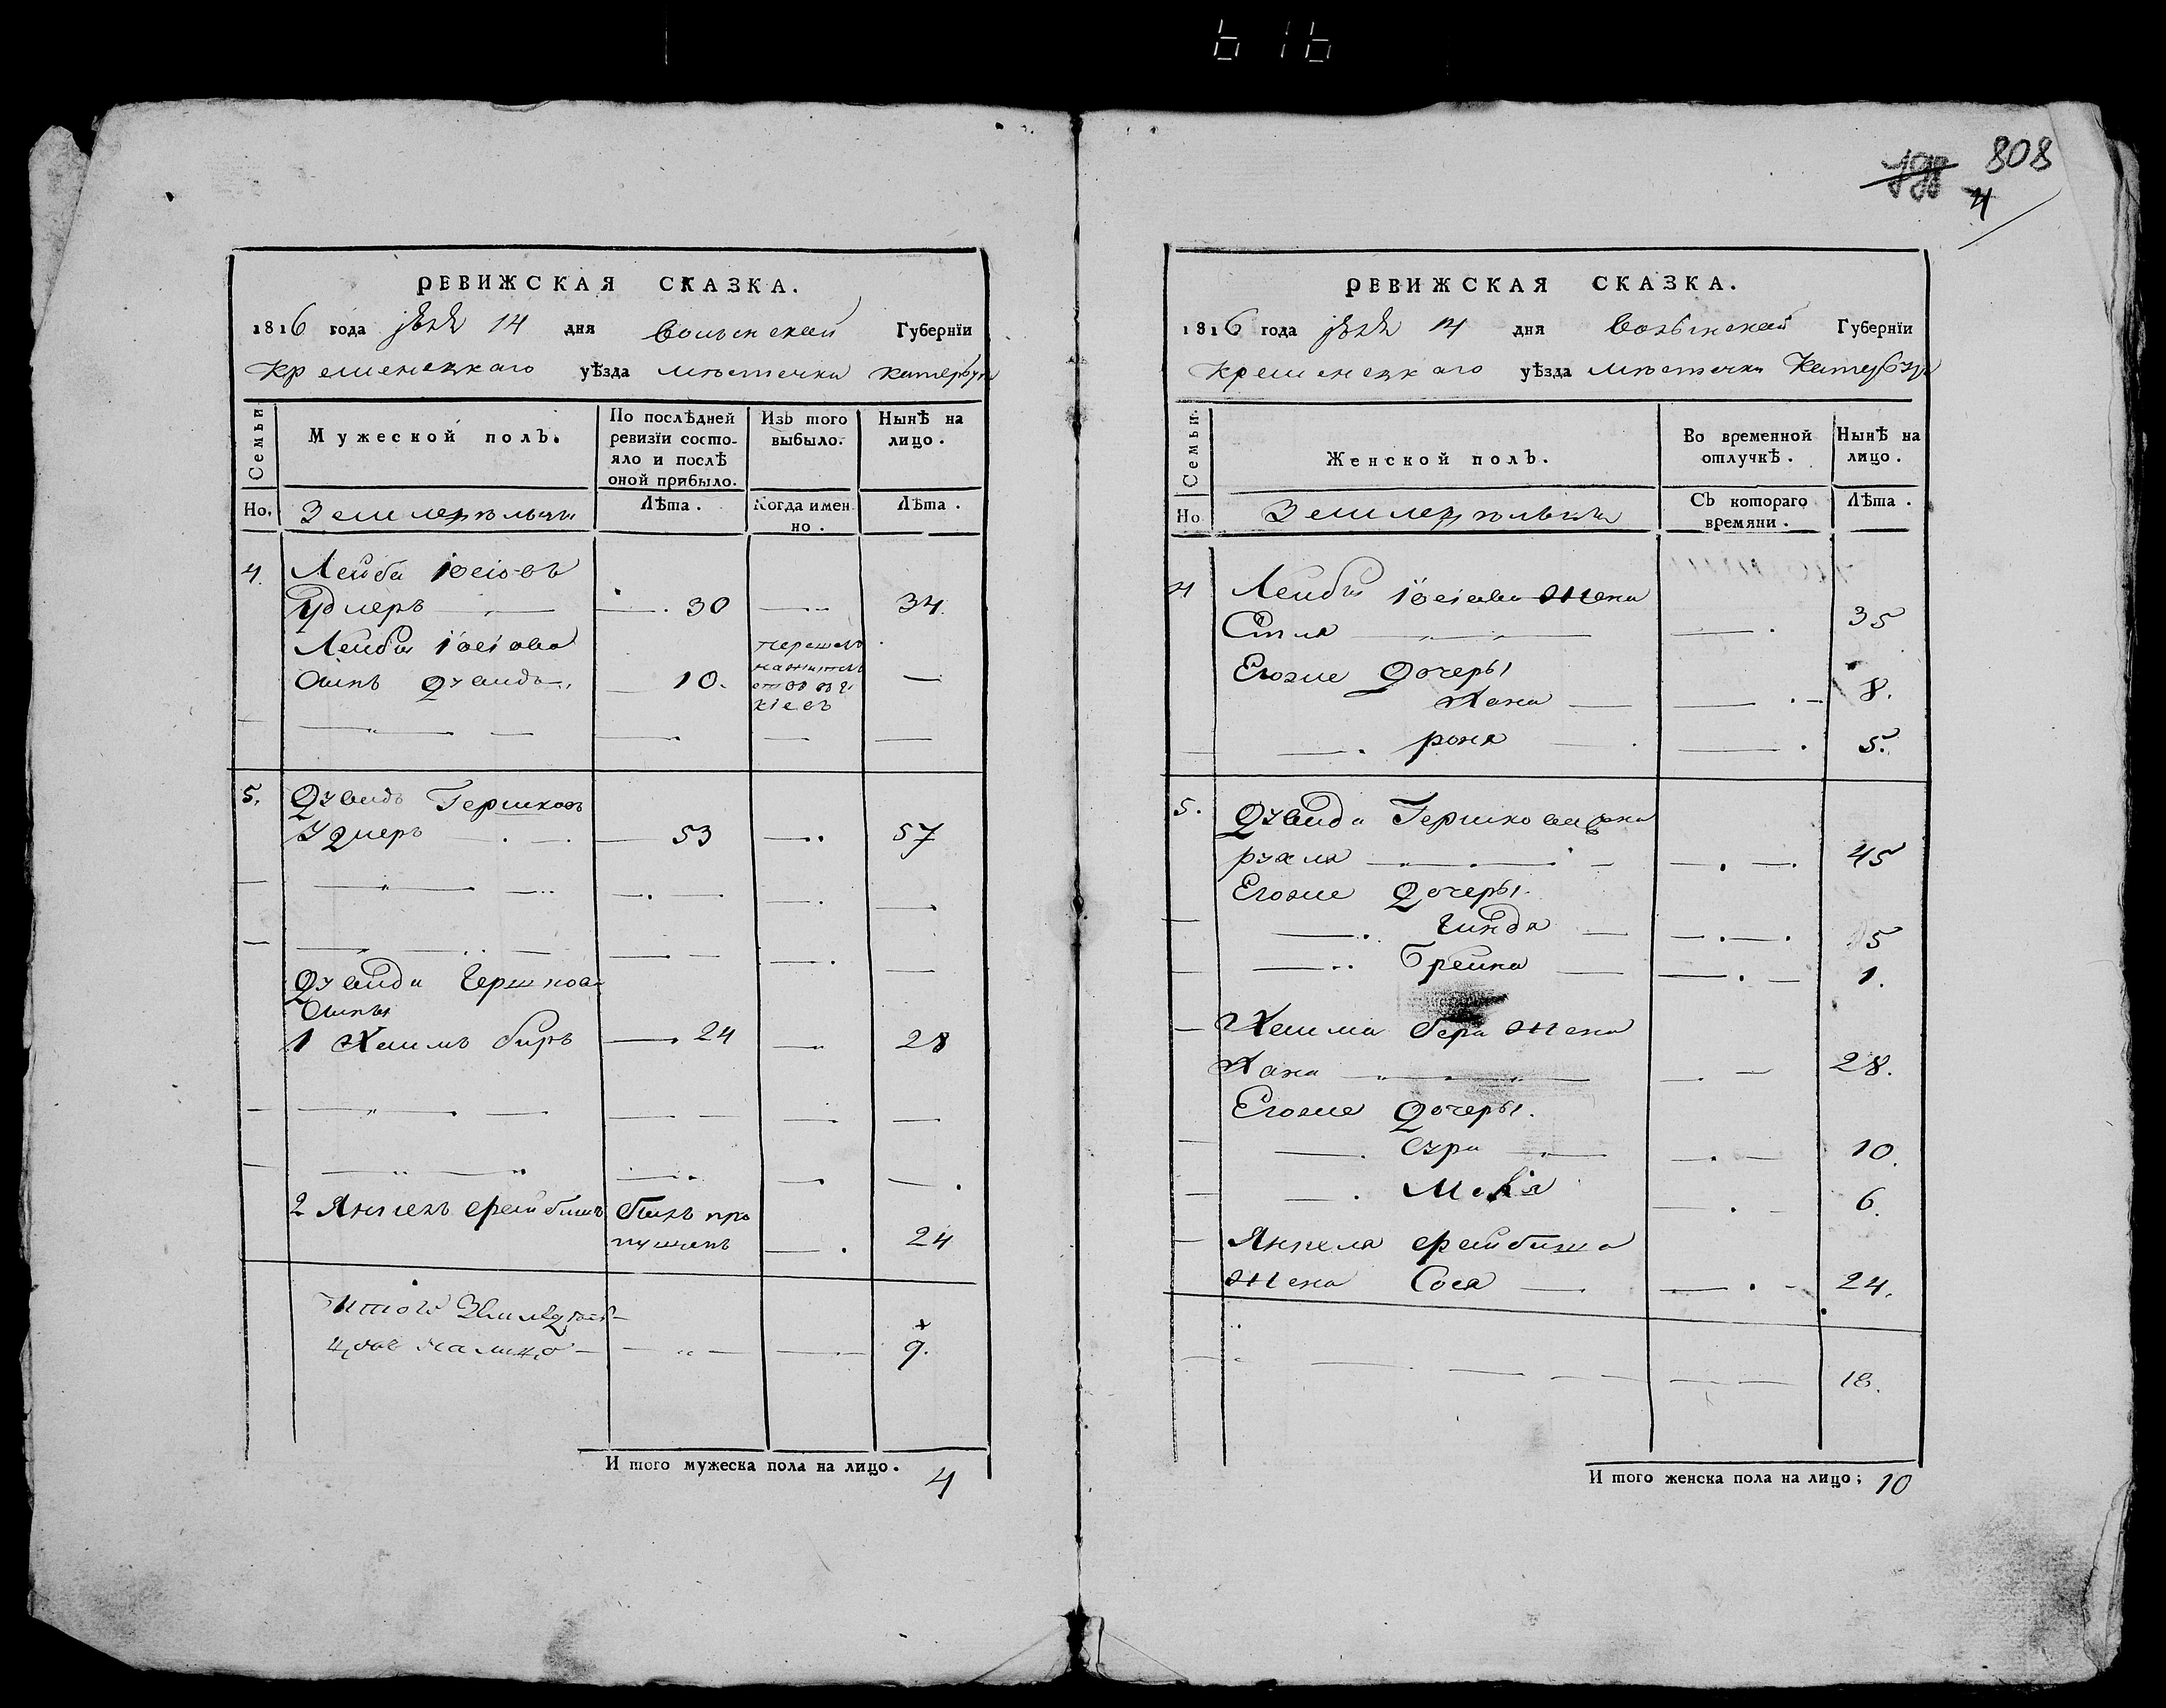 616
808
4
РЕВИЖСКАЯ СКАЗКА.
1816 года 14 дня Волынской Губернїи
Кременецкаго уѣзда мѣстечка Катербург
Семьи
Мужеской полъ.
По послѣдней ревизїи состояло и послѣ оной прибыло.
Изъ того выбыло.
Нынѣ на лицо.
Но. Земледѣльцы
Лѣта.
Когда именно.
Лѣта.
4. Лейба Иосiовъ
Удлеръ 30 34.
Лейбы Иосiова
Сынъ Дувидъ 10.
перешелъ
кiевъ
5. Дувидъ Гершковъ
Удлеръ 53 57
Дувида Гершкова
Сыны
1 Хаимъ Беръ 24 28
2 Янкель Фейбишъ былъ про
пущенъ 24
Итого Земледѣль
цовъ налицо 9.
И того мужеска пола на лицо. 4
РЕВИЖСКАЯ СКАЗКА.
1816 года 14 дня Волынской Губернїи
Кременецкаго уѣзда мѣстечка Катербург
Семьи.
Женской полъ.
Во временной отлучкѣ.
Нынѣ на лицо.
Но Земледѣльцы
Съ котораго времяни.
Лѣта.
4 Лейбы Иосiова жена
35
Егоже Дочеры
Хана 8.
рохя 5.
5. Дувида Гершкова жена
рухля 45
Егоже Дочеры.
Гинда
Брейна 1.
Хаима Бера жена
Хана 28.
Егоже Дочеры.
сура 10.
6.
Янкеля Фейбиша
жена Сося 24.
18.
И того женска пола на лицо; 10